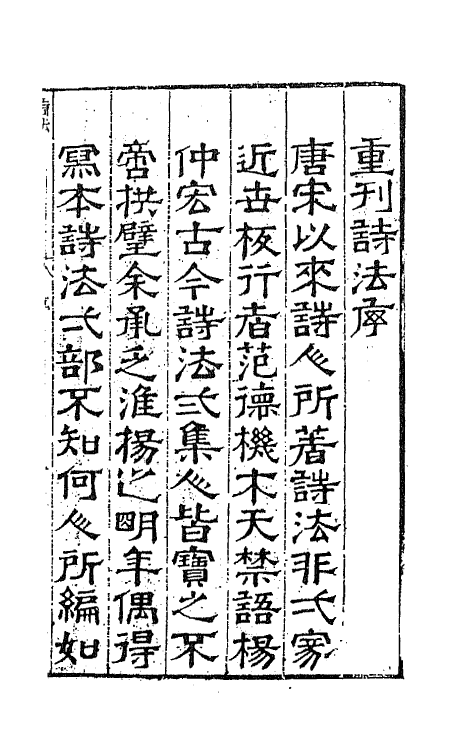 重刊詩法序
唐宋以來詩人所著詩法非一家
近世板行者范德機木天禁語楊
仲宏古今詩法二集人皆寶之不
啻拱璧余承乏淮楊之明年偶得
寫本詩法一部不知何人所編如